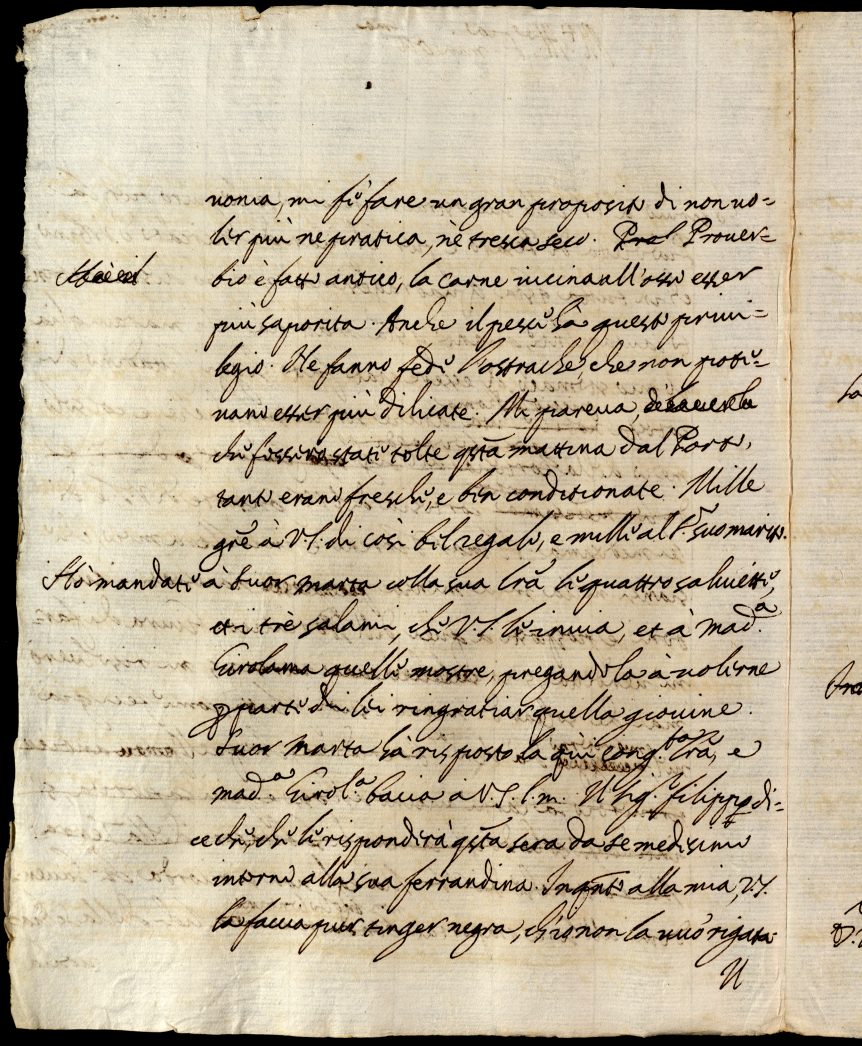 uonia, mi fè fare un gran proposito di non uo=
ler più ne pratica, nè tresca seco. Prouer=
bio è fatto antico, la carne iuicina all'osso esser
più saporita. Anche il pesce hà questo priui=
legio. Ne fanno fede l'ostrache, che non pote=
uano esser più dilicate. Mi pareua,
che fossero state tolte qsta mattina dal Porto,
tanto erano fresche, e ben conditionate. Mille
gre à V.S. di così bel regalo, e mille al Sr suo marito.
Hò mandate à Suor Marta colla sua lrã le quattro saluiette,
et i trè salami, che V.S. le inuia, et à mad.a
Girolama quelle mostre, pregandola à uolerne
p parte di lei ringratiar quella giouine.
Suor Marta hà risposto la qui cong.ta lrã, e
mad.a Girol.a bacia à V.S. l.m. Il Sig.r Filippo di=
ce che, che le risponderà qsta sera da se medesimo
intorno alla sua ferrandina. Inqnto alla mia, V.S.
la faccia pur tinger negra, ch'io non la uuò rigata
Il